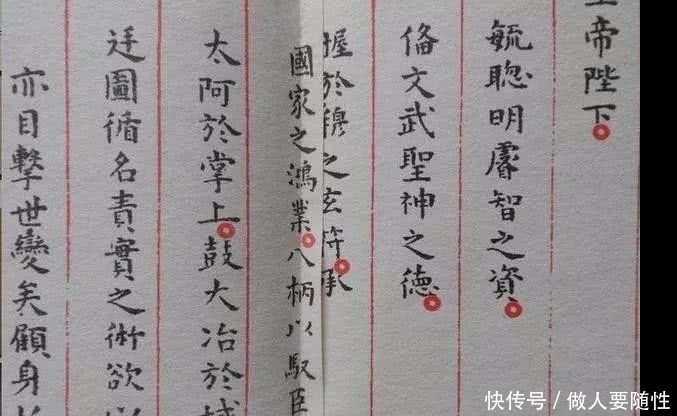 帝陛下
毓聰明睿智之資
俻文武聖神之德
握於穆之玄符承
國家之鴻業八柄以馭臣
太阿於掌上鼓大冶於
迋圖循名責實之術欲以
亦目擊世變矣顧身
快传号/做人要随性